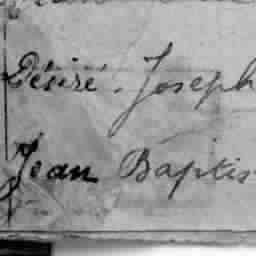 Désiré. Joseph
Jean Baptis